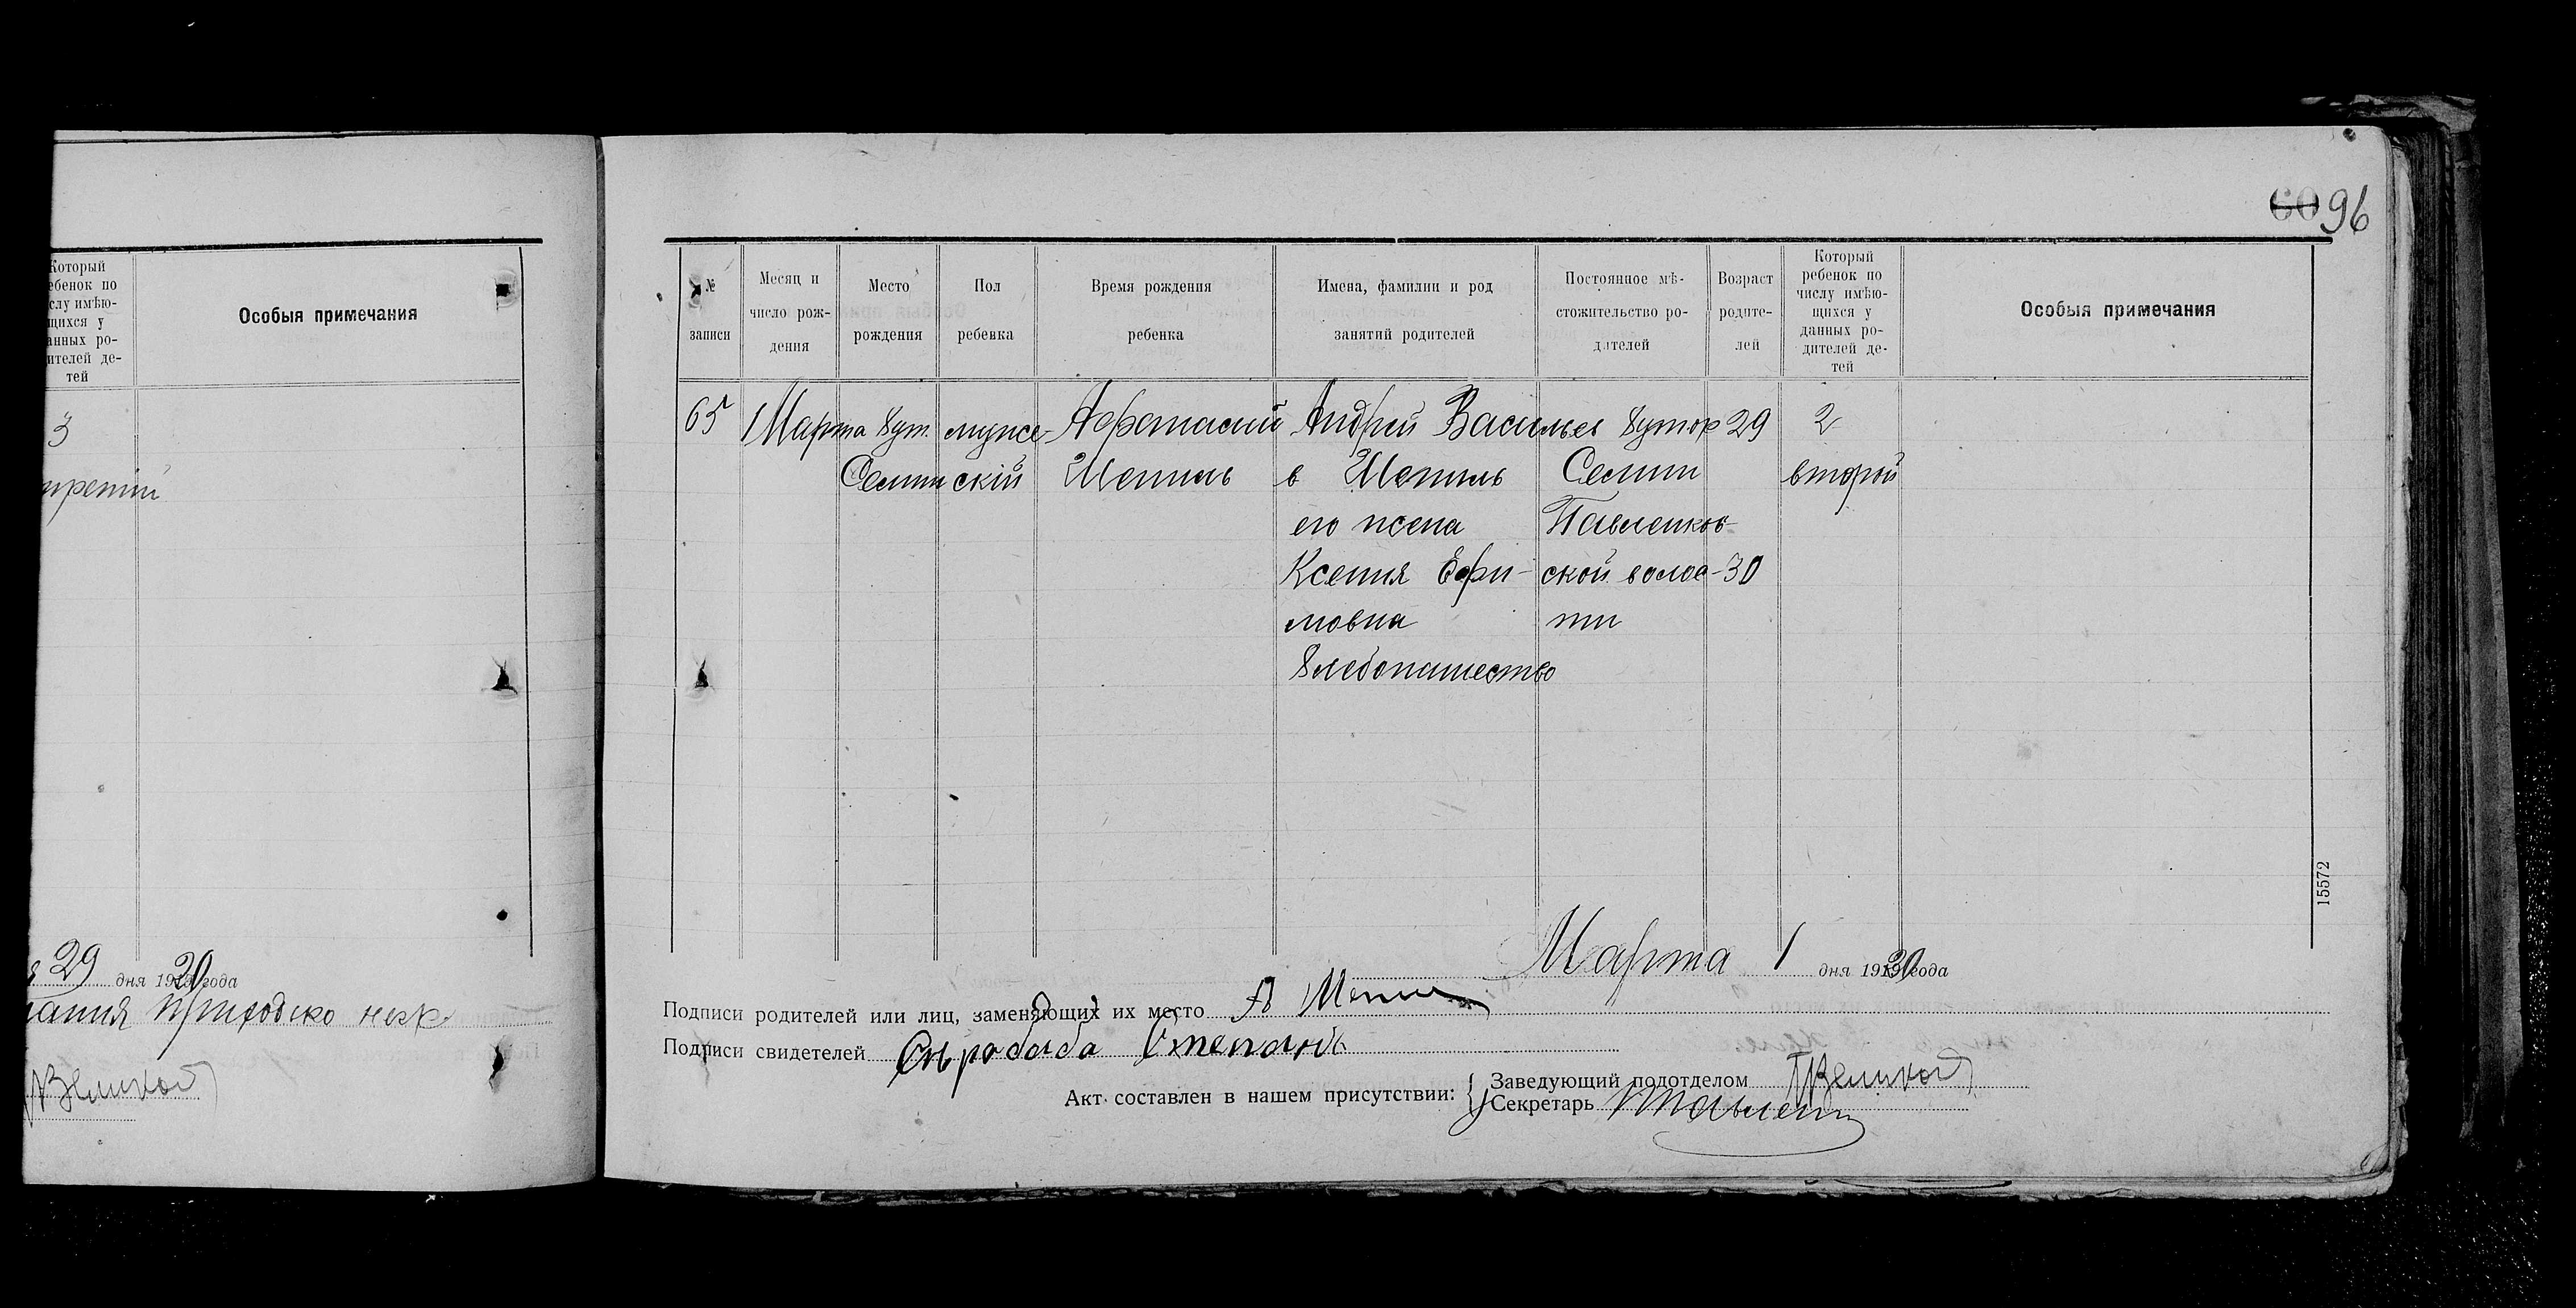 Который
ебенок по
слу имѣю-
щихся у
анных ро-
ителей де-
тей
Особыя примечания
3
третий
29 дня 1920 года
Приходько негр
Великой
60 96
№ записи
Месяц и число рож-дения
Место рождения
Пол ребенка
Время рождения ребенка
Имена, фамилии и род занятий родителей
Постоянное мѣ-стожительство ро-дителей
Возраст родите-лей
Который ребенок по числу имѣю-щихся у данных ро-дителей де-тей
Особыя примечания
65 1 Марта Хут. мужс- Афанасий Андрей Василье Хутор 29 2
ский в второй
его жена
Ксения Ефи- ской волос- 30
мовна ти
Хлебопашество
15572
Марта 1 дня 1920 года
Подписи родителей или лиц, заменяющих их место А
Подписи свидетелей Сыробаба Степанъ
Акт составлен в нашем присутствии:
Заведующий подотделом Великой
Секретарь